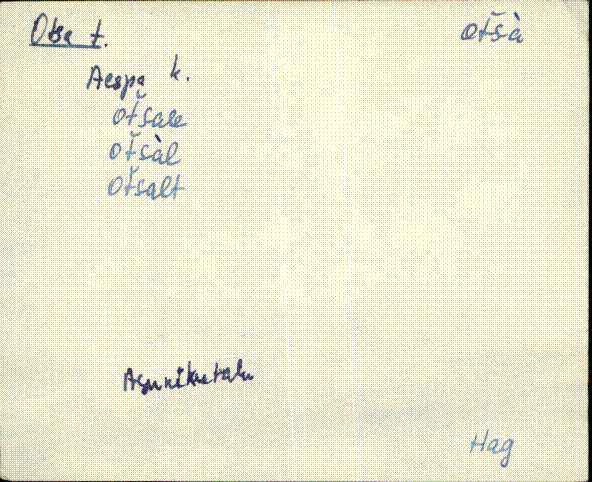 Otsa t. otšà
Aespa k.
otšale
otšàl
otšalt
Asunikutalu
Hag